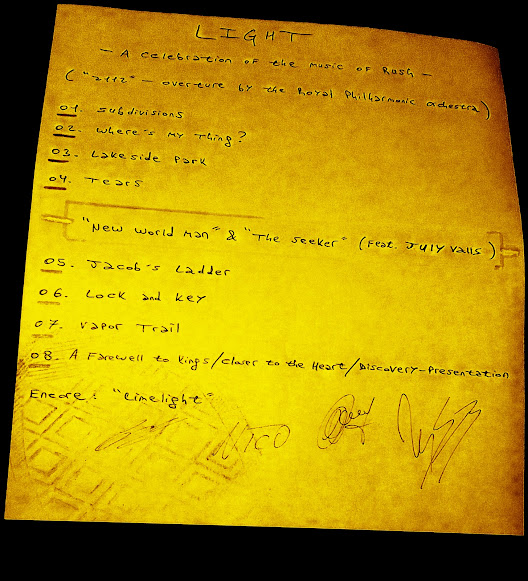 LIGHT
- A celebration of the music of Rush -
("2112" - overture by the Royal Philharmonic Orchestra)
01. Subdivisions
02. Where's My Thing?
03. Lakeside Park
04. Tears
"New World Man" & "The Seeker" (Feat. July Valls)
05. Jacob's Ladder
06. Lock and Key
07. Vapor Trail
08. A Farewell to Kings/Closer to the Heart/Discovery-Presentation
Encore: "Limelight"